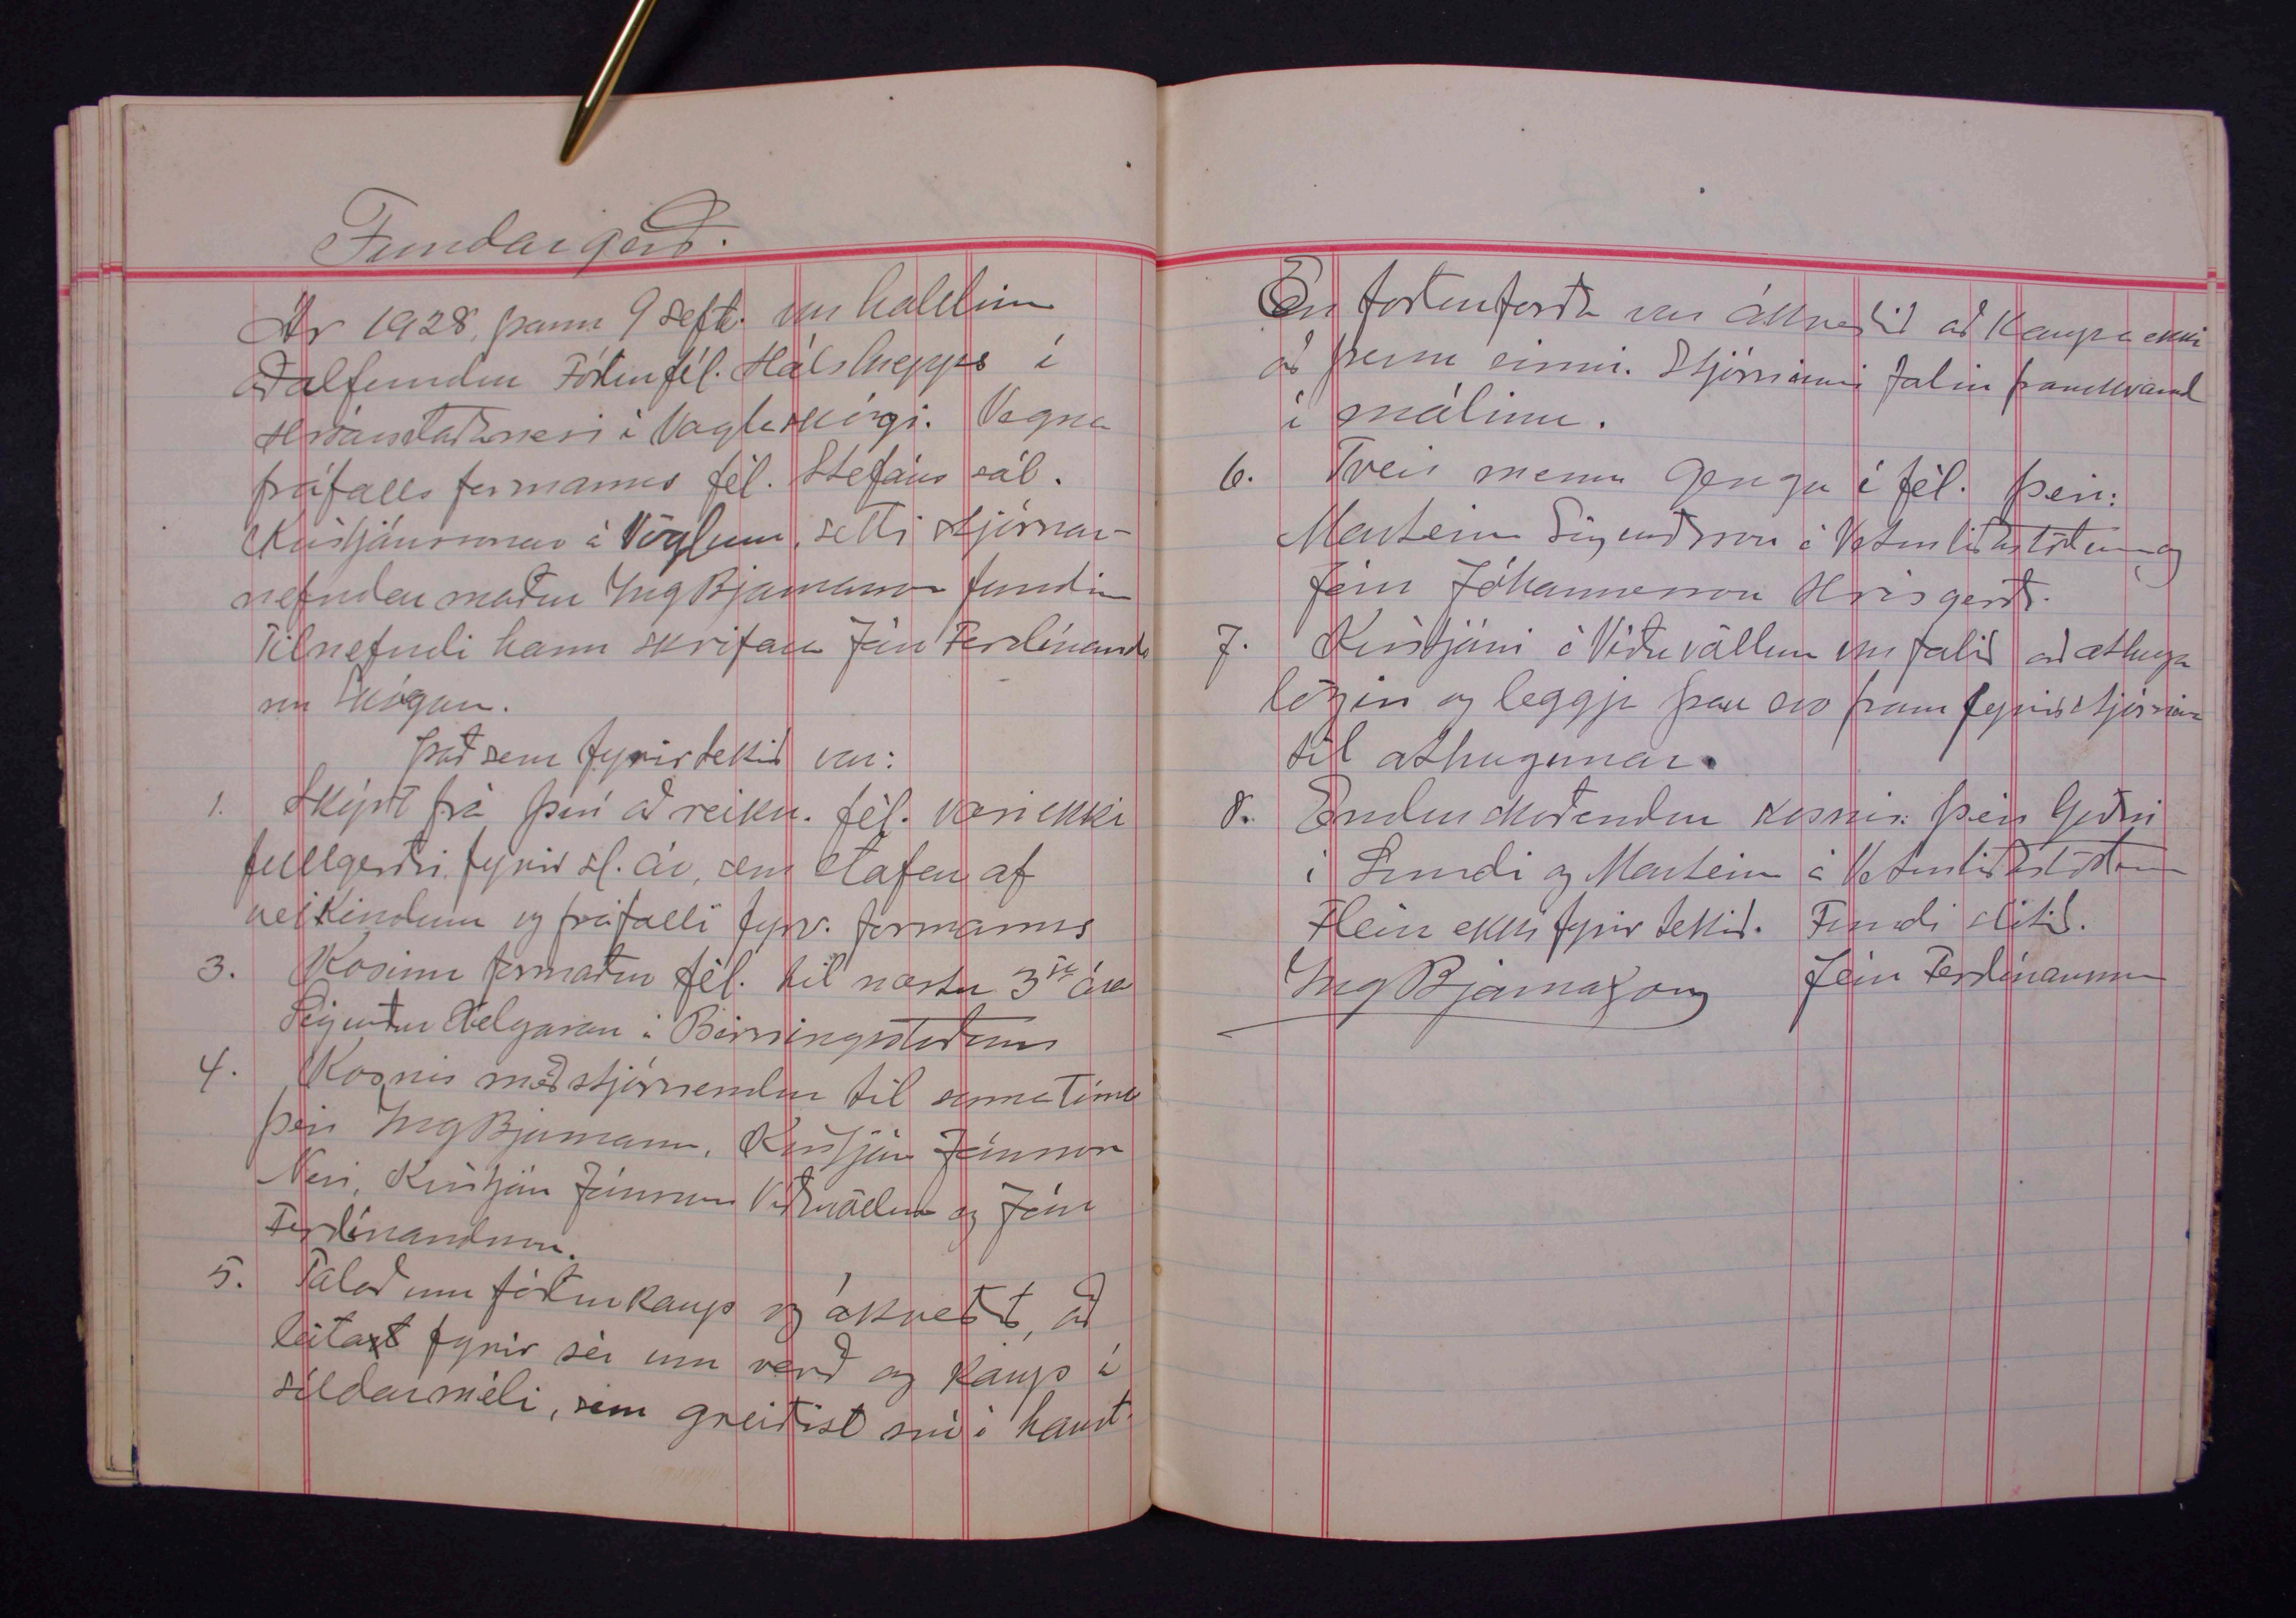 Fundargerð.
Ár 1928, þann 9 sept. var haldinn
aðalfundur Fóðurfél. Hálshrepps í
Hróarstaðanesi í Vaglaskógi. Vegna
fráfalls formanns fél. Stefáns sál.
Kristjánssonar á Vöglum, setti stjórnar-
nefndar maður Ing Bjarnarson fundinn
Tilnefndi hann skrifara Jón Ferdínands
son Skógum.
Það sem fyrirtekið var:
1. Skýrt frá því að reikn. fél. væri ekki
fullgerðri fyrir sl. ár, sem stafar af
veikindum og fráfalli fyrv. formanns
3. Kosinn formaður fél. til næstu 3ja ára
Sigurður Helgason á Birningsstöðum
4. Kosnir meðstjórnendur til sama tíma
þeir Ing Bjarnarson, Kristján Jónsson
Nesi, Kristján Jónsson Víðivöllum og Jón
Ferdínandsson.
5. Talað um fóðurkaup og ákveðið, að
leitast fyrir sér um verð og kaup á
síldarméli, sem greiðist nú í haust.
En foðurforða var ákveðið að kaupa ekki
að þessu sinni. Stjórninni falin framkvæmd
í málinu.
6. Tveir menn gengu í fél. þeir:
Marteinn Sigurðsson á Veturliðastöðum og
Jón Jóhannesson Hrísgerði.
7. Kristjáni á Víðivöllum var falið að athuga
lögin og leggja þau svo fram fyrir stjórnina
til athugunar.
8. Endurskoðendur kosnir: þeir Geðri
í Lundi og Marteinn á Veturliðastöðum
Fleira ekki fyrir tekið. Fundi slitið.
Ing Bjarnarson Jón Ferdínandsson